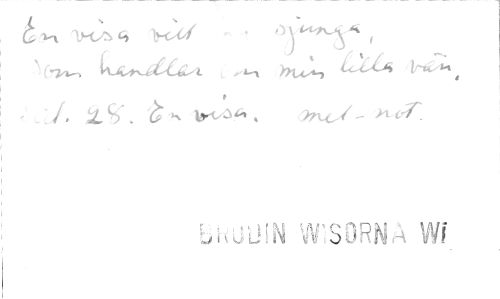 En visa vill sjunga,
som handlar om min lilla vän.
28. En visa. mel-not.
BRODIN WISORNA WI